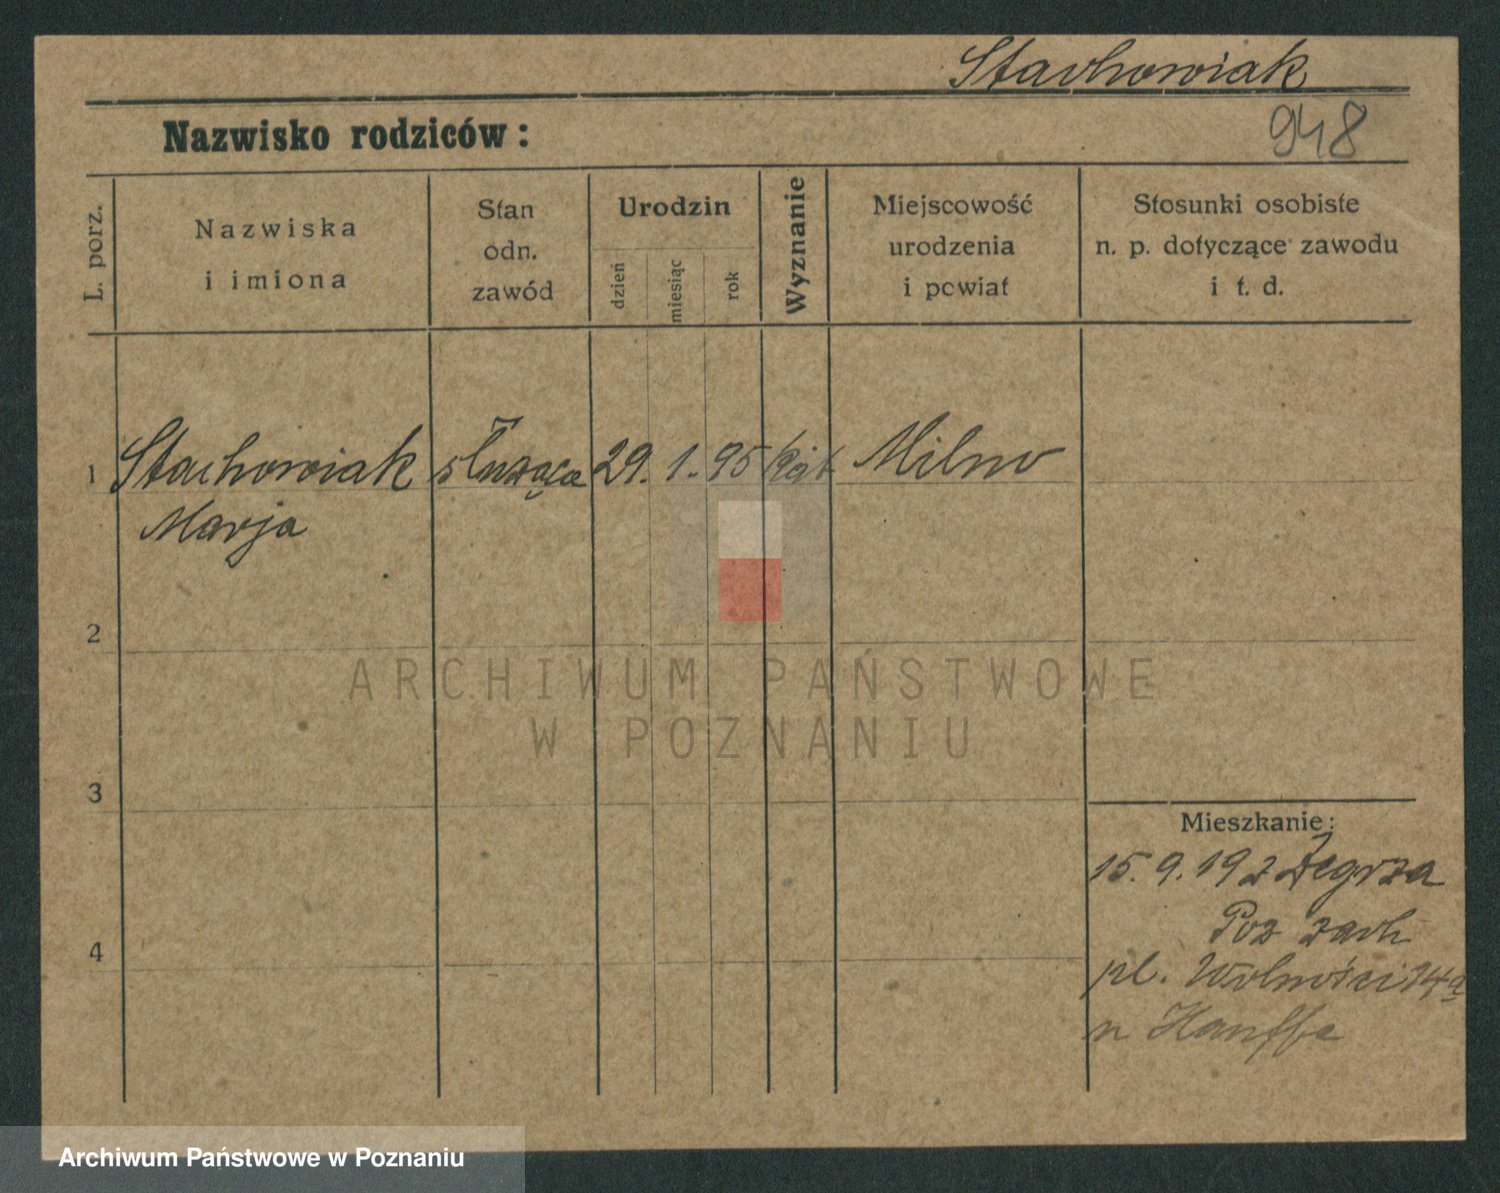 Stachowiak
948
Nazwisko rodziców:
L. porz.
Nazwiska
i imiona
Stan
odn.
zawód
Urodzin
dzień
miesiąc
rok
Wyznanie
Miejscowość
urodzenia
i powiat
Stosunki osobiste
n. p. dotyczące zawodu
i t. d.
1 Stachowiak służąca 29. 1. 95 kat Milno
Marja
2
ARCHIWUM PAŃSTWOWE
W POZNANIU
3
Mieszkanie:
15. 9. 192 Żegrza
Poz zach
4
pl. Wolności 14a
n Hanffe
Archiwum Państwowe w Poznaniu